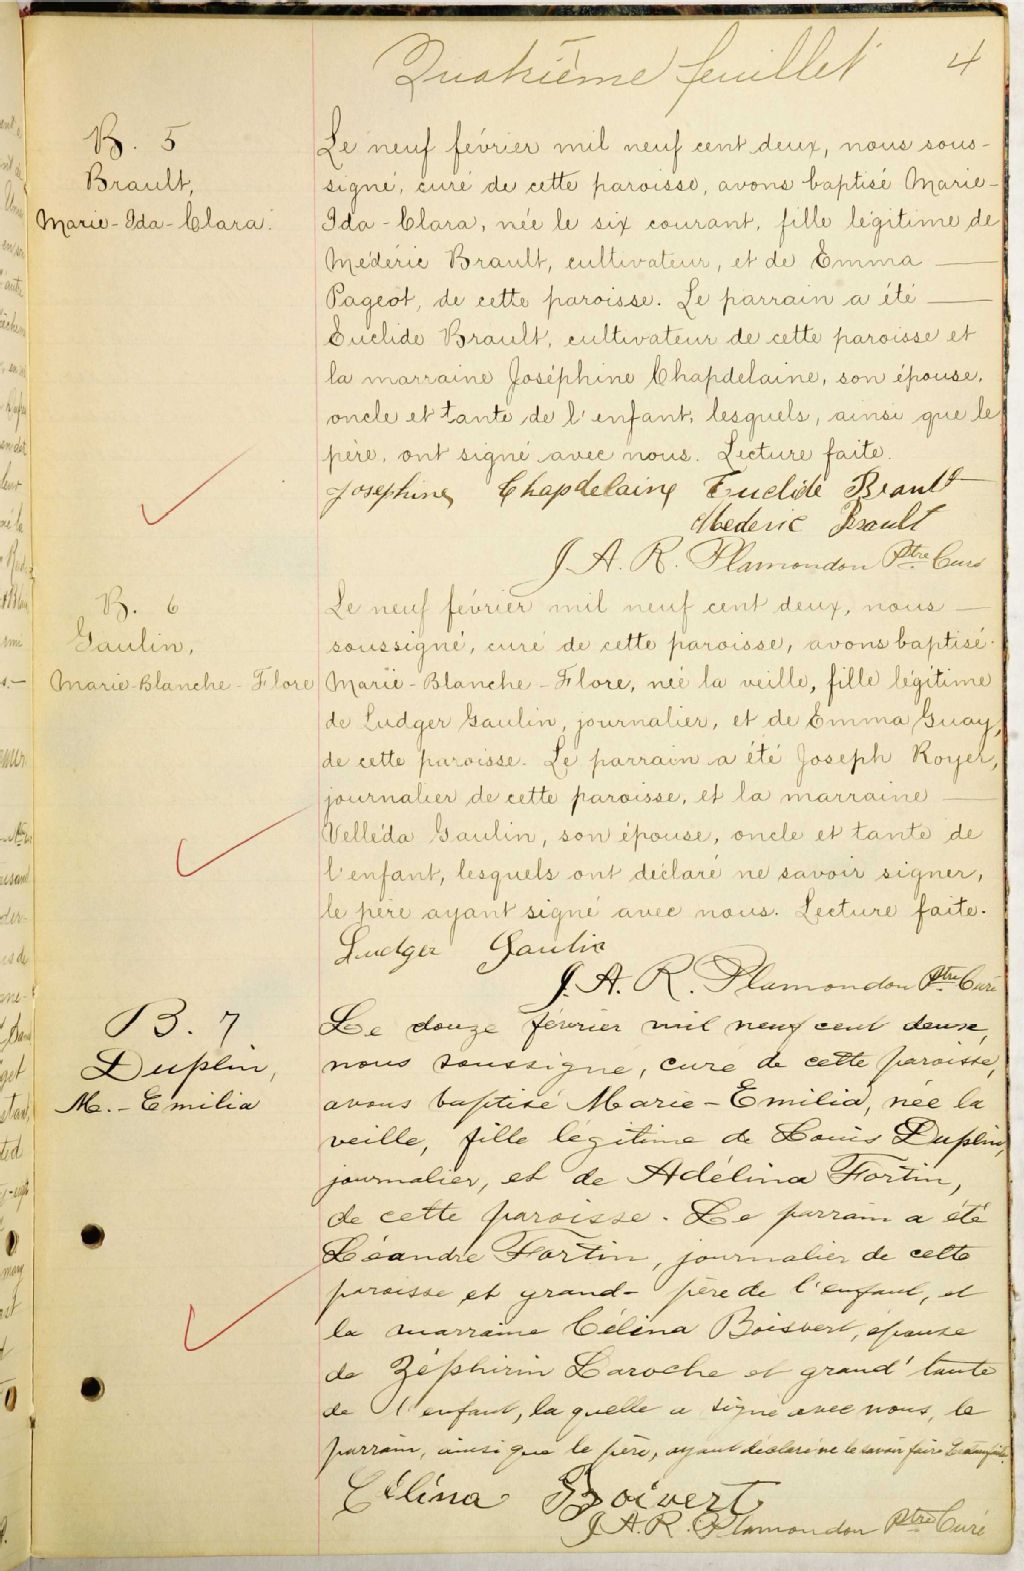 Quatrième feuillet 4
B. 5
Brault,
Marie-Ida-Clara.
Le neuf février mil neuf cent deux, nous sous-
signé, curé de cette paroisse, avons baptisé Marie-
Ida-Clara, née le six courant, fille légitime de
Médéric Brault, cultivateur, et de Emma
Pageot, de cette paroisse. Le parrain a été
Euclide Brault, cultivateur de cette paroisse et
la marraine Joséphine Chapdelaine, son épouse,
oncle et tante de l'enfant, lesquels, ainsi que le
père, ont signé avec nous. Lecture faite.
Josephine Chapdelaine Euclide Brault
Mederic Brault
J. A. R. Plamondon Ptre Curé
B. 6
Gaulin,
Marie-Blanche-Flore
Le neuf février mil neuf cent deux, nous
soussigné, curé de cette paroisse, avons baptisé
Marie-Blanche-Flore, née la veille, fille légitime
de Ludger Gaulin, journalier, et de Emma Guay,
de cette paroisse. Le parrain a été Joseph Royer,
journalier de cette paroisse, et la marraine
Velléda Gaulin, son épouse, oncle et tante de
l'enfant, lesquels ont déclaré ne savoir signer,
le père ayant signé avec nous. Lecture faite.
Ludger Gaulin
J. A. R. Plamondon Ptre Curé
B. 7
Duplin,
M.-Emilia
Le douze février mil neuf cent deux,
nous soussigné, curé de cette paroisse,
avons baptisé Marie-Emilia, née la
veille, fille légitime de Louis Duplin,
journalier, et de Adélina Fortin,
de cette paroisse. Le parrain a été
Léandre Fortin, journalier de cette
paroisse et grand-père de l'enfant, et
la marraine Célina Boisvert, épouse
de Zéphirin Laroche et grand'tante
de l'enfant, laquelle a signé avec nous, le
parrain, ainsi que le père, ayant déclaré ne le savoir faire. Lecture faite.
Célina Boivert
J. A. R. Plamondon Ptre Curé